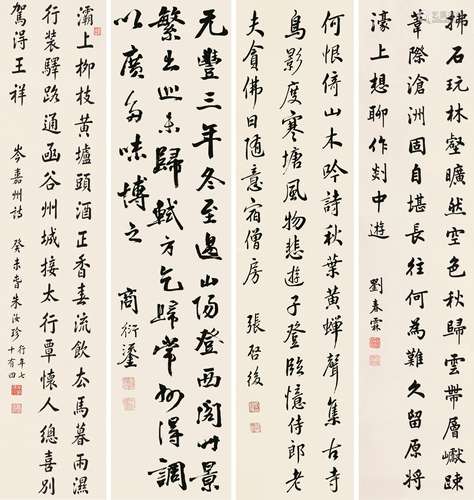 拂石玩林壑曠然空色秋歸雲帶層巘疎
葦際滄洲固自堪長往何為難久留原將
濠上想聊作剡中遊
劉春霖
何恨倚山木吟詩秋葉黃蟬聲集古寺
鳥影度寒塘風物悲遊子登臨憶侍郎老
夫貪佛日隨意宿僧房
張啓後
元豐三年冬至過山陽登西閣時景
繁出巡未歸軾方乞歸常州得調
以廣味博之
商衍鎏
灞上柳枝黃壚頭酒正香春流飲去馬暮雨濕
行裝驛路通函谷州城接太行覃懷人總喜別
駕得王祥
岑嘉州詩
癸未春朱汝珍
行年七
十有四